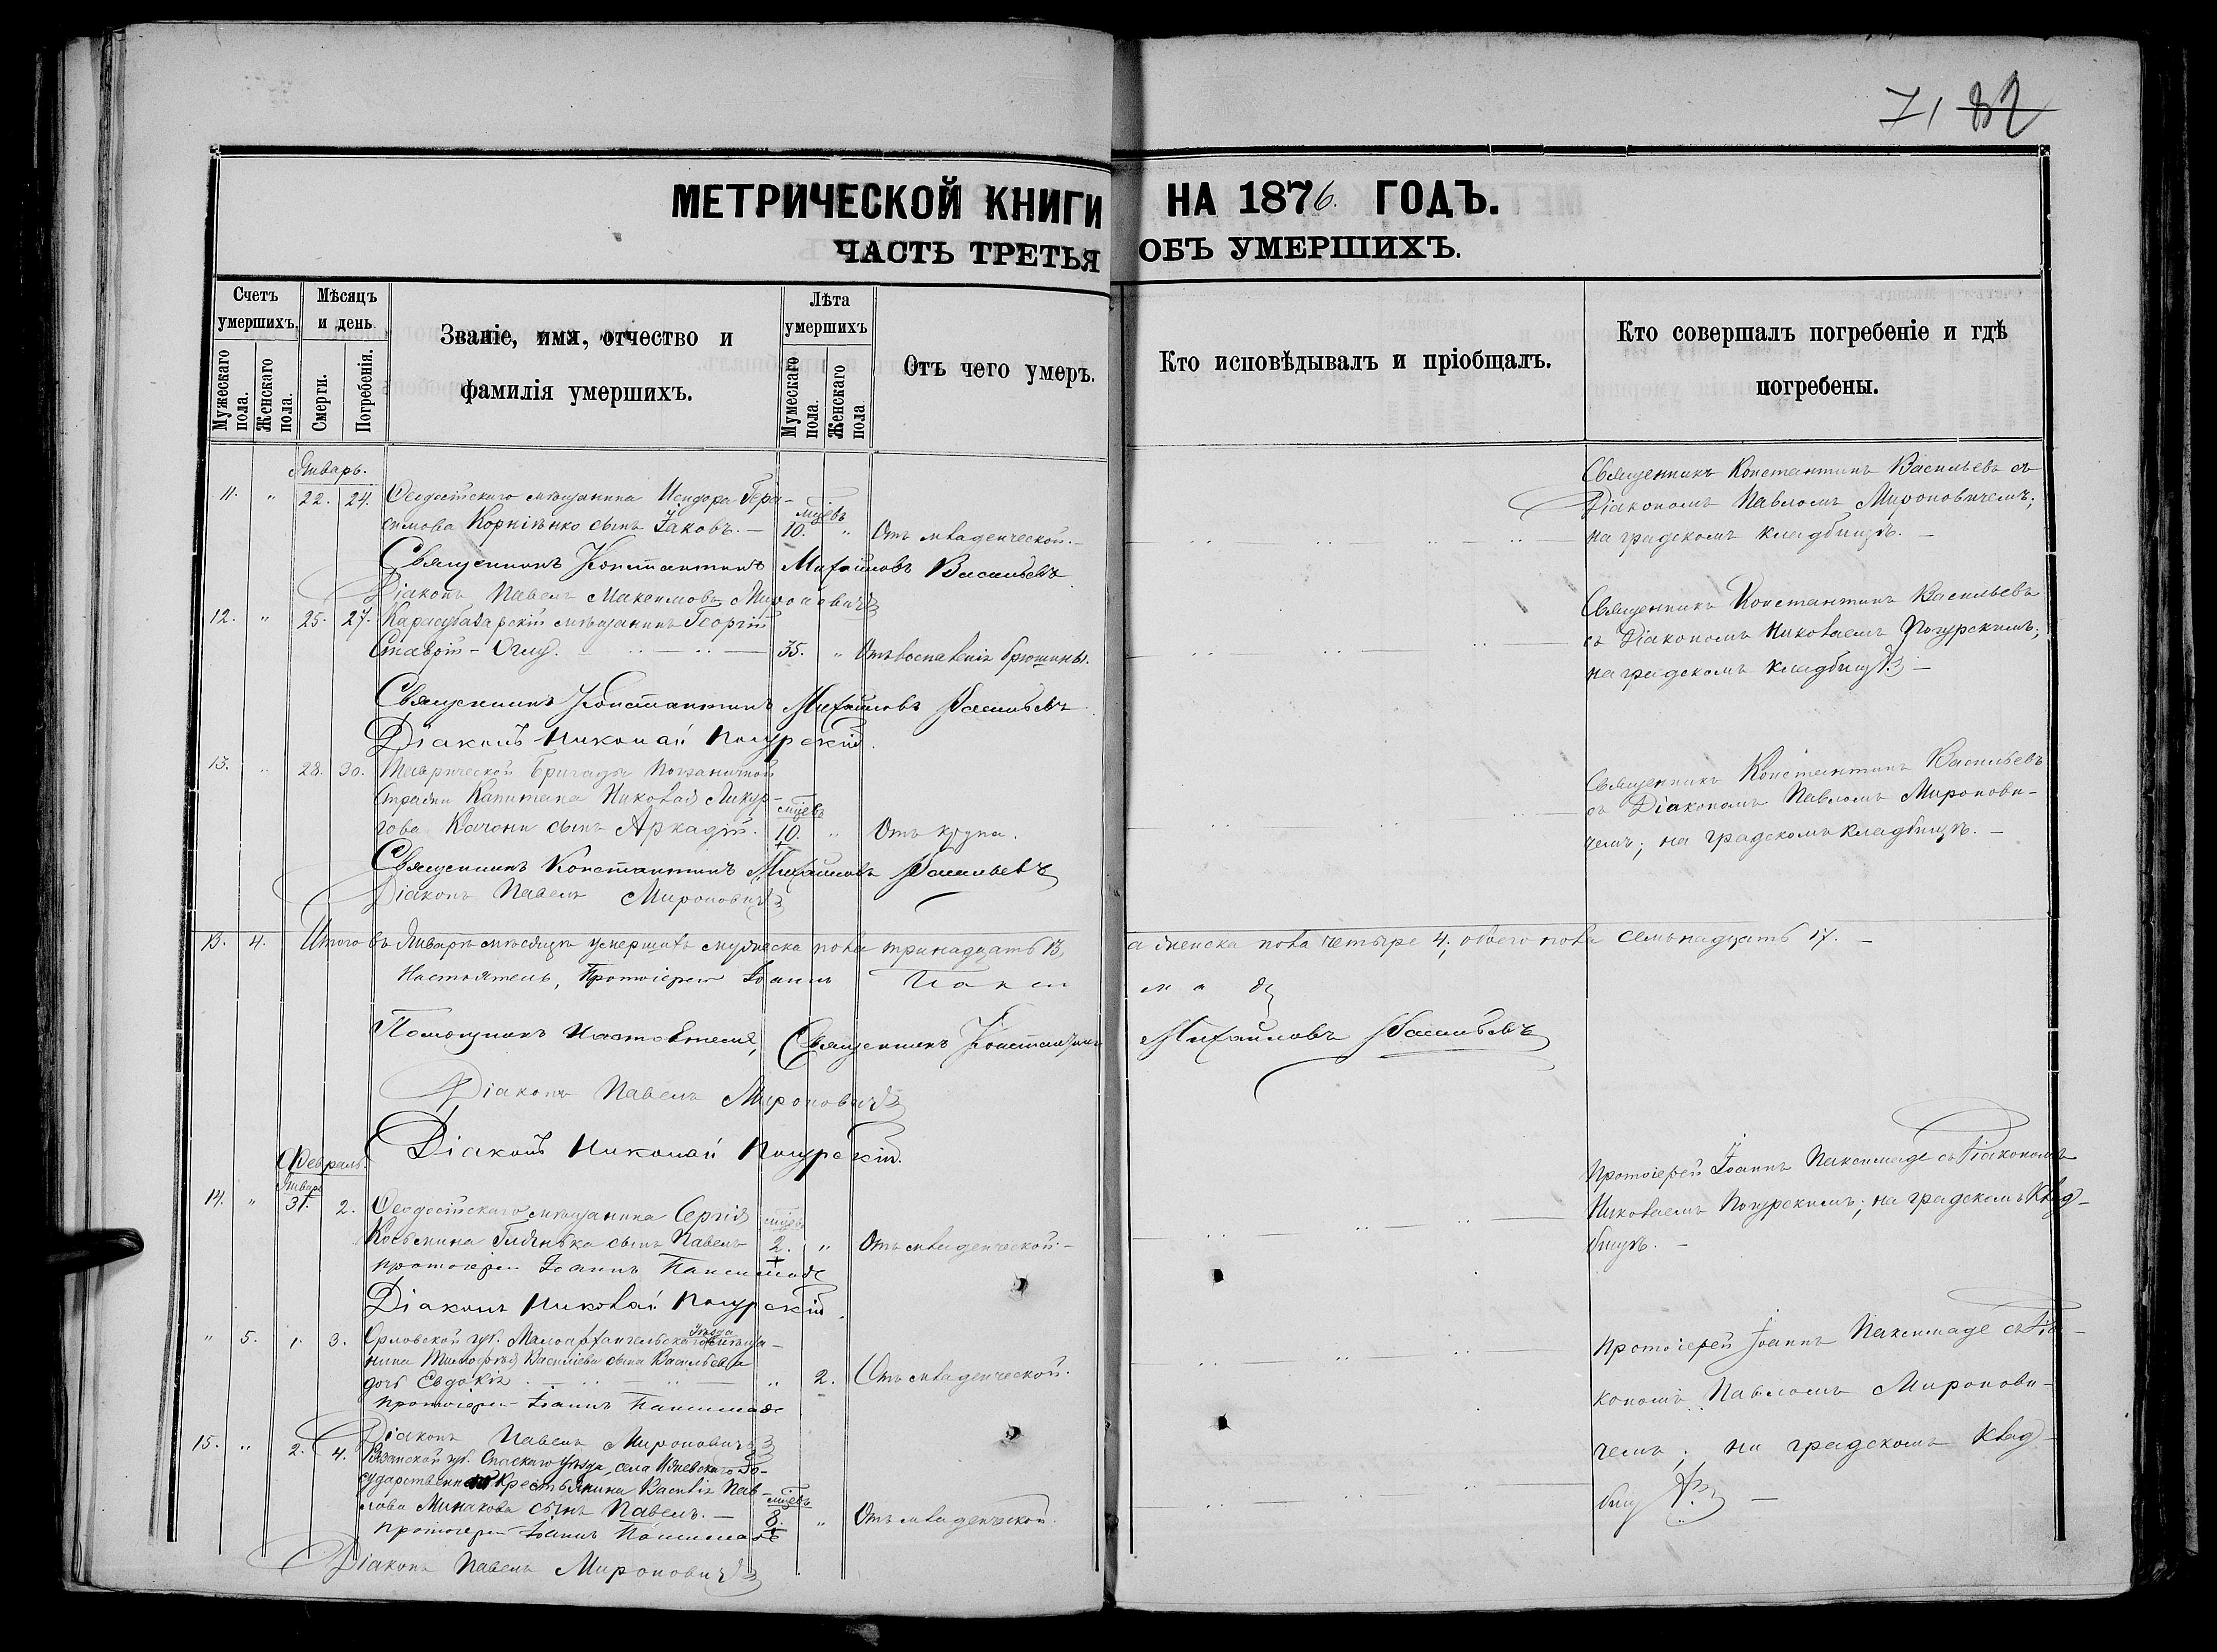 71 82
МЕТРИЧЕСКОЙ КНИГИ НА 1876. ГОДЪ.
ЧАСТЬ ТРЕТЬЯ ОБЪ УМЕРШИХЪ.
Счетъ умершихъ.
Мужескаго пола.
Женскаго пола.
Мѣсяцъ и день
Смерти.
Погребенія.
Званіе, имя, отчество и
фамилія умершихъ.
Лѣта умершихъ
Мумескаго пола.
Женскаго пола
Отъ чего умеръ.
Кто исповѣдывалъ и пріобщалъ.
Кто совершалъ погребеніе и гдѣ
погребены.
Январь.
11. " 22. 24. Ѳеодосійскаго мѣщанина Исидора Гера-
симова Корніенко сынъ Іаковъ. — мѣцевъ 10. " Отъ младенческой. —
Священникъ Константинъ Васильевъ съ
Діакономъ Павломъ Мироновичемъ;
на градскомъ кладбищѣ. —
Священникъ Константинъ Михайловъ Васильевъ
Діаконъ Павелъ Максимовъ Мироновичъ
12. " 25. 27. Карасубазарскій мѣщанинъ Георгій
Ставрій-Оглу. 35. " Отъ воспаленія брюшины.
Священникъ Константинъ Васильевъ
съ Діакономъ Николаемъ Погурскимъ;
на градскомъ кладбищѣ —
Священникъ Константинъ Михайловъ Васильевъ
Діаконъ Николай Погурскій.
13. " 28. 30. Таврической Бригады Пограничной
Стражи Капитана Николая Ликур-
гова Качони сынъ Аркадій. мѣцевъ 10. " Отъ крупа.
Священникъ Константинъ Васильевъ
съ Діакономъ Павломъ Миронови-
чемъ; на градскомъ кладбищѣ. —
Священникъ Константинъ Михайловъ Васильевъ
Діаконъ Павелъ Мироновичъ
13. 4. Итого въ Январѣ мѣсяцѣ умершихъ мужеска пола тринадцать 13, а женска пола четыре 4; обоего пола семьнадцать 17. —
Настоятель, Протоіерей Іоаннъ Паксимаде
Помощникъ Настоятеля, Священникъ Константинъ Михайловъ Васильевъ
Діаконъ Павелъ Мироновичъ
Діаконъ Николай Погурскій.
Февраль.
Январь
14. " 31. 2. Ѳеодосійскаго мѣщанина Сергія
Косьмина сынъ Павелъ мѣцевъ 2. " Отъ младенческой. —
Протоіерей Іоаннъ Паксимаде съ Діакономъ
Николаемъ Погурскимъ; на градскомъ клад-
бищѣ. —
протоіерей Іоаннъ Паксимаде
Діаконъ Николай Погурскій.
" 5. 1. 3. Орловской губ. Малоархангельскаго уѣзда мѣща-
нина Тимофея Васильева сына Васильева
дочь Евдокія " 2. Отъ младенческой.
Протоіерей Іоаннъ Паксимаде съ Діа-
кономъ Павломъ Миронови-
чемъ; на градскомъ клад-
бищѣ. —
протоіерей Іоаннъ Паксимаде
Діаконъ Павелъ Мироновичъ
15. " 2. 4. Рязанской губ. Спаскаго уѣзда, села Ижевскаго Го-
сударственнаго Крестьянина Василія Пав-
лова Минакова сынъ Павелъ. — мѣцевъ 8. " Отъ младенческой.
протоіерей Іоаннъ Паксимаде
Діаконъ Павелъ Мироновичъ